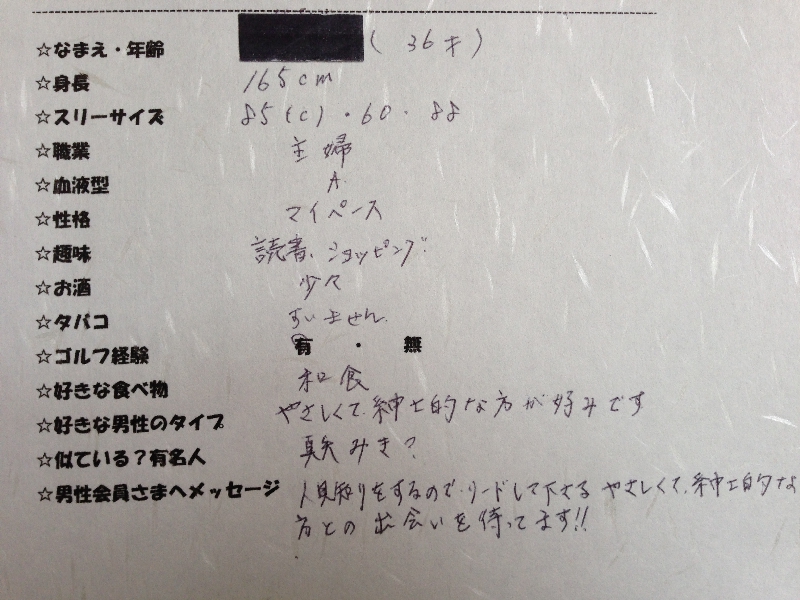 ☆なまえ・年齢 (36才)
☆身長 165cm
☆スリーサイズ 85(C)・60・88
☆職業 主婦
☆血液型 A
☆性格 マイペース
☆趣味 読書、ショッピング
☆お酒 少々
☆タバコ すいません
☆ゴルフ経験 有・無
☆好きな食べ物 和食
☆好きな男性のタイプ やさしくて、紳士的な方が好みです
☆似ている?有名人 真矢みき?
☆男性会員さまへメッセージ 人見知りをするので、リードして下さる やさしくて、紳士的な
方との出会いを待ってます!!